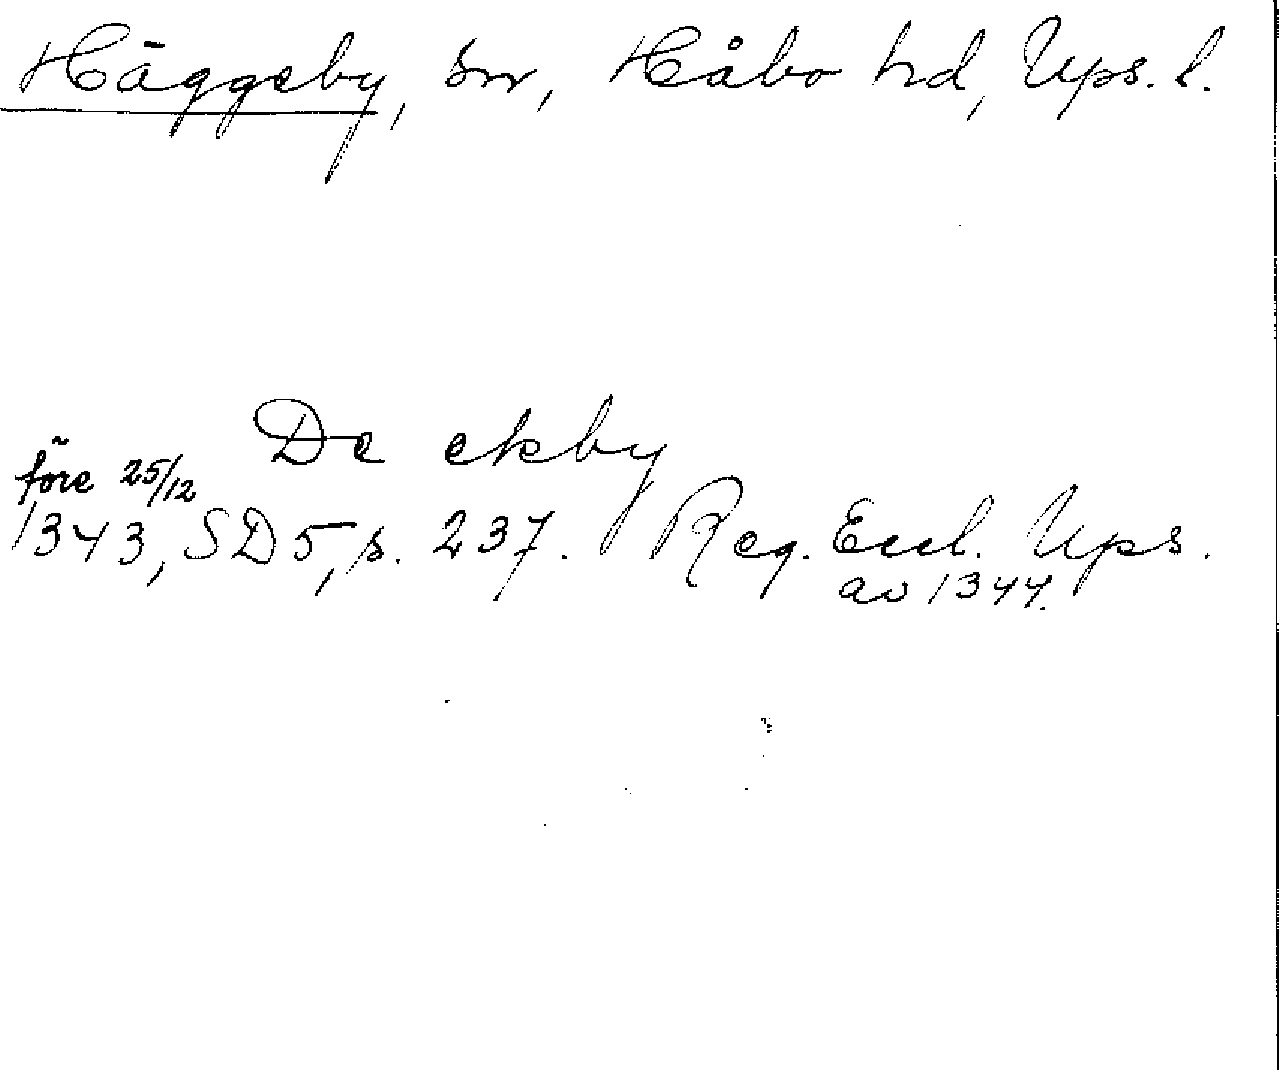 Häggeby, sn, Håbo hd, Ups. l.
De ekby
före 25/12
1343, SD 5, s. 237. Reg. Eccl. Ups.
av 1344.